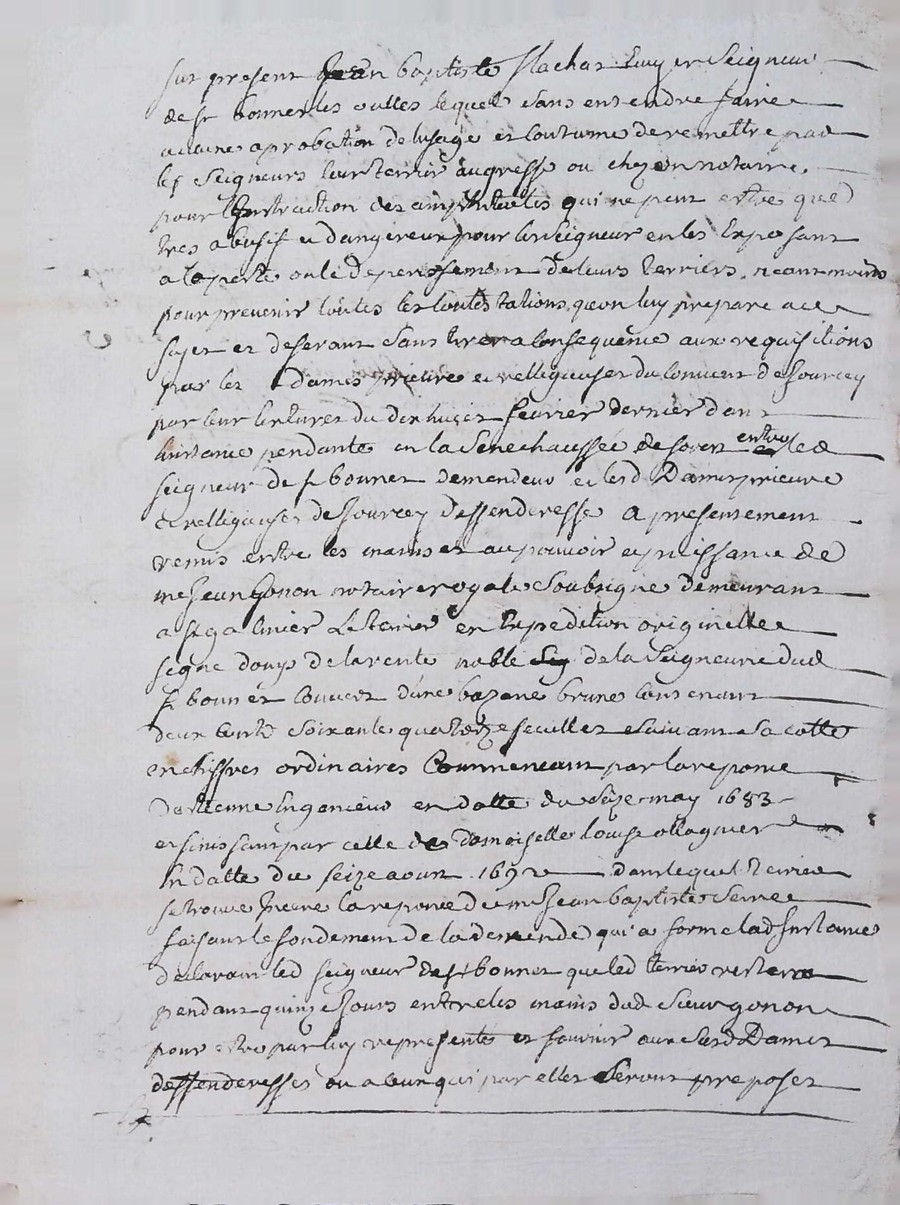 fut present Jean baptiste flachat Ecuyer Seigneur
de st bonnet les oulles lequel sans entendre faire
aucune aprobation de lusage et coutume de remettre par
les Seigneurs leur terrier au greffe ou chez un notaire
pour linstruction des qui ne peut estre que
tres abusif et dangereux pour les Seigneur en les Exposant
a la perte ou le deperissement de leurs terriers. neantmoins
pour prevenir toutes les Contestations qu'on luy prepare a ce
sujet et deferant sans tirer a Consequence aux requisitions
par les dames prieure et relligieuses du Convent de Jourcey
par leur Ecritures du dix huit fevrier dernier dans
linstance pendante en la Senechaussée de forest entre led
seigneur de st bonnet demendeur et lesd Dames prieure
et relligieuses de Jourcey deffenderesse a presentement
remis entre les mains et au pouvoir et puissance de
me Jean Gonon notaire royal Soubsigné demeurant
a st galmier Le terrier en Expedition originelle
signé de la rente noble de la Seigneurie dud
st bonnet Couvert d'une bazane brune Contenant
deux Cents Soixante quatorze feuillet suivant sa cotte
en chiffres ordinaires Commencant par la reponce
en datte du Seize may 1683
et finissant par celle de Damoiselle louise ollagnier
En datte du seize aoust 1692 dans lequel terrier
se trouve Jncere la reponce de me Jean baptiste
faisant le fondement de la demende qu'a formé lad Jnstance
declarant led seigneur de st bonnet que led terrier restera
pendant quinze Jours entre les mains dud Sieur gonon
pour estre par luy representé et fournir aux Susd Dames
deffenderesses ou a Ceux qui par elles Seront preposez